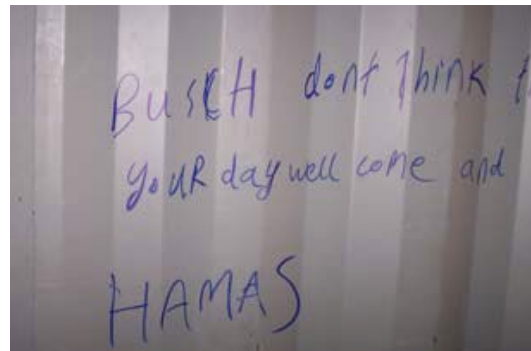 BUSCH dont think
your day well come and
HAMAS